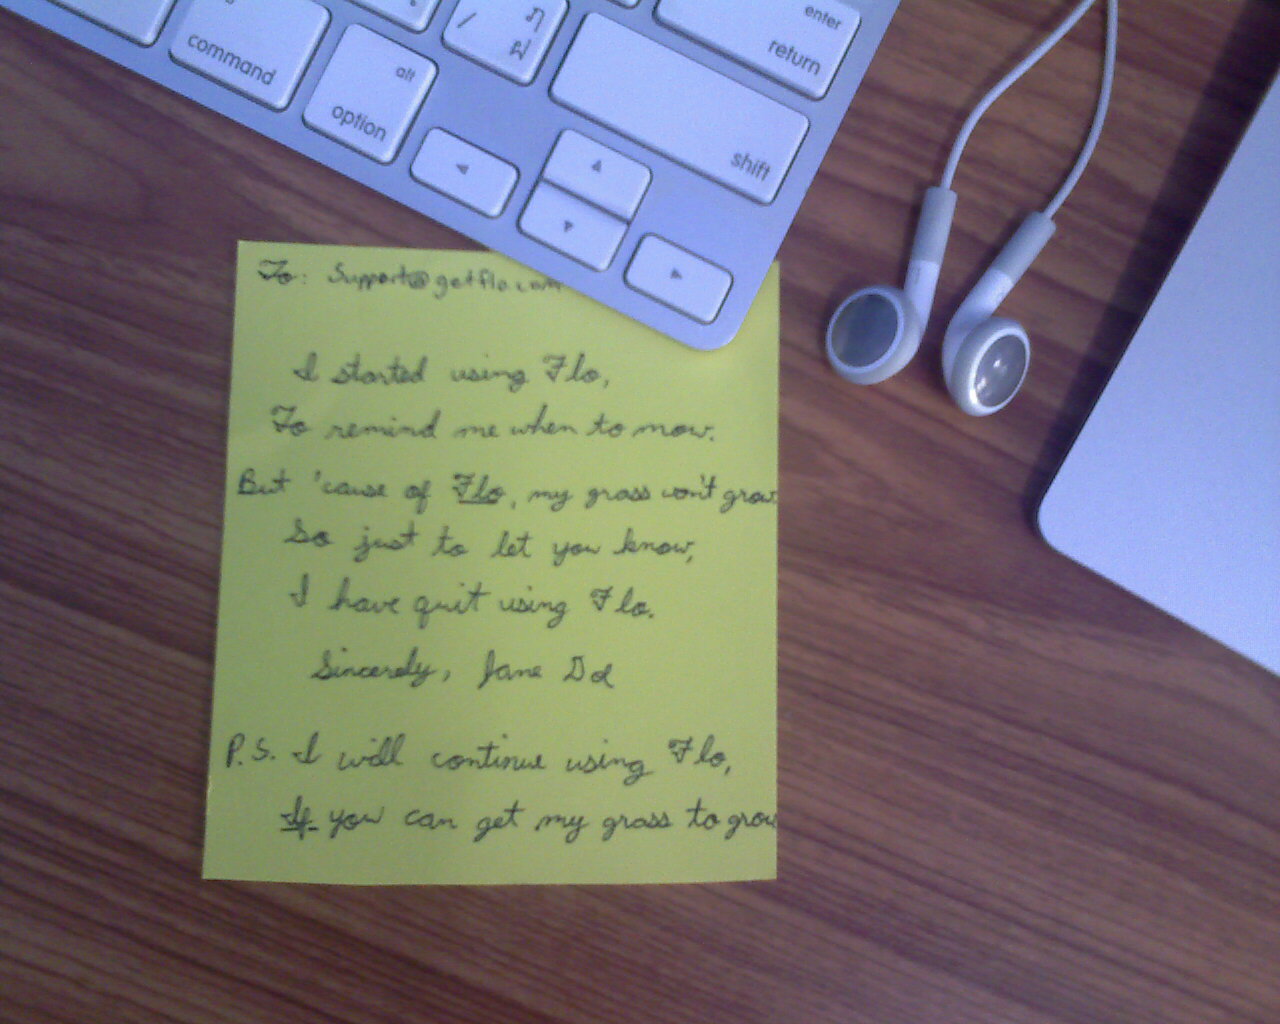 command
alt
option
/
ฦ
ฝ
enter
return
shift
To: Support@getflo.com
I started using Flo,
To remind me when to mow.
But 'cause of Flo, my grass won't grow
So just to let you know,
I have quit using Flo.
Sincerely, Jane Dd
P.S. I will continue using Flo,
If you can get my grass to grow